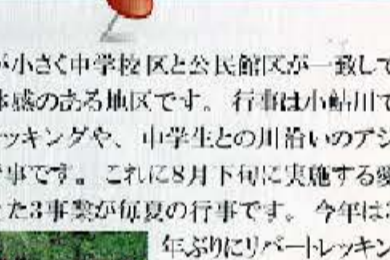 が小さく中学校区と公民館区が一致して
体感のある地区です。行事は小鮎川で
ッキングや、中学生との川沿いのアジ
事です。これに8月下旬に実施する愛
た3事業が毎夏の行事です。今年は
年ぶりにリバートレッキン